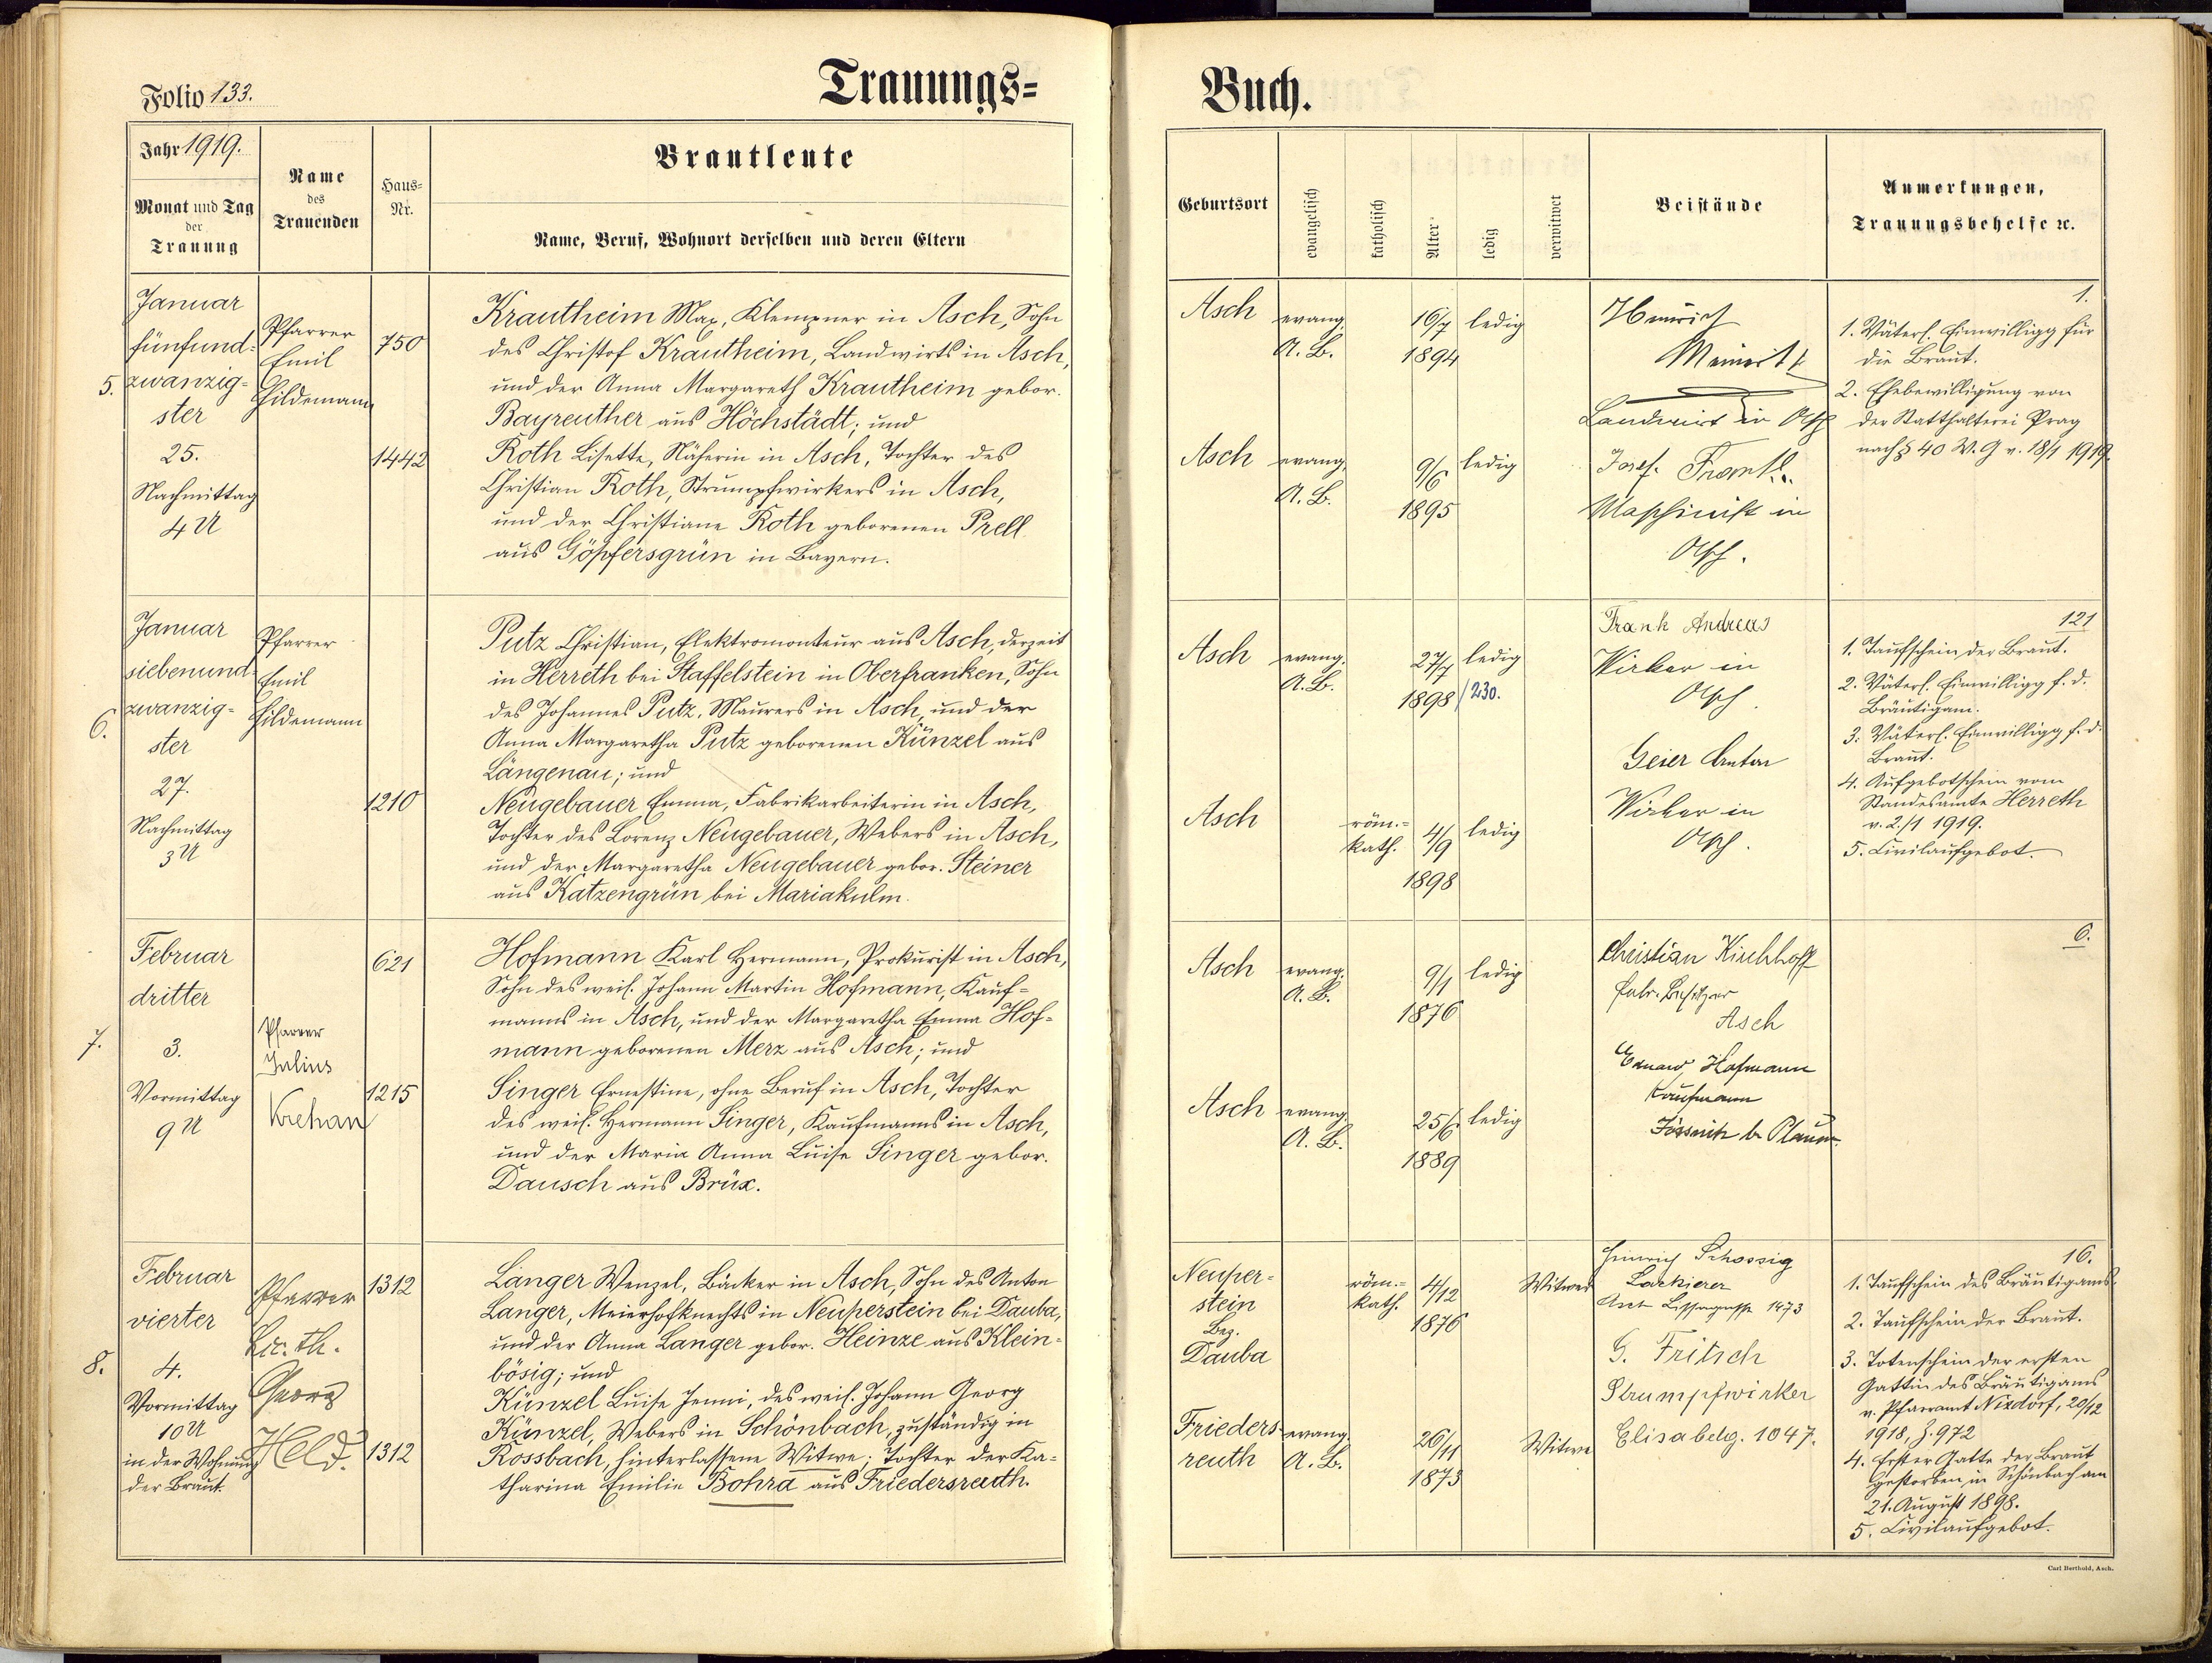 Folio 133.
Trauungs=
Buch.
Jahr 1919.
Monat und Tag
der
Trauung
Name
des
Trauenden
Haus=
Nr.
Brautleute
Name, Beruf, Wohnort derselben und deren Eltern
Geburtsort
evangelisch
katholisch
Alter
ledig
verwitwet
Beistände
Anmerkungen,
Trauungsbehelfe ꝛc.
5.
Januar
fünfund-
zwanzig-
ster
25.
Nachmittag
4 U
Pfarrer
Emil
Hildemann
750
1442
Krautheim Max, Klempner in Asch, Sohn
des Christof Krautheim, Landwirts in Asch,
und der Anna Margareth Krautheim gebor.
Bayreuther aus Höchstädt; und
Roth Lisette, Näherin in Asch, Tochter des
Christian Roth, Strumpfwirkers in Asch,
und der Christiane Roth geborenen Prell
aus Göpfersgrün in Bayern.
Asch
evang.
A. B.
16/7
1894
ledig
Asch
evang.
A. B.
9/6
1895
ledig
Heinrich
Landwirt in Asch
Josef
Maschinist in
Asch.
1.
1. Väterl. Einwilligg für
die Braut.
2. Ehebewilligung von
der Statthalterei Prag
nach § 40 W. G v. 18/1 1919.
6.
Januar
siebenund-
zwanzig-
ster
27.
Nachmittag
3 U
Pfarrer
Emil
Hildemann
1210
Putz Christian, Elektromonteur aus Asch, derzeit
in Herreth bei Staffelstein in Oberfranken, Sohn
des Johannes Putz, Maurers in Asch, und der
Anna Margaretha Putz geborenen Künzel aus
Längenau; und
Neugebauer Emma, Fabrikarbeiterin in Asch,
Tochter des Lorenz Neugebauer, Webers in Asch,
und der Margaretha Neugebauer gebor. Steiner
aus Katzengrün bei Mariakulm.
Asch
evang.
A. B.
27/7
1898
/230.
ledig
Asch
röm.=
kath.
4/9
1898
ledig
Frank Andreas
Wirker in
Asch.
Geier Anton
Wirker in
Asch.
121
1. Taufschein der Braut.
2. Väterl. Einwilligg f. d.
Bräutigam.
3. Väterl. Einwilligg f. d.
Braut.
4. Aufgebotschein vom
Standesamte Herreth
v. 2./1 1919.
5. Civilaufgebot.
7.
Februar
dritter
3.
Vormittag
9 U
Pfarrer
Julius
Krehan
621
1215
Hofmann Karl Hermann, Prokurist in Asch,
Sohn des weil. Johann Martin Hofmann, Kauf=
manns in Asch, und der Margaretha Emma Hof=
mann geborenen Merz aus Asch; und
Singer Ernestine, ohne Beruf in Asch, Tochter
des weil. Hermann Singer, Kaufmanns in Asch,
und der Maria Anna Luise Singer gebor.
Dausch aus Brüx.
Asch
evang.
A. B.
9/1
1876
ledig
Asch
evang.
A. B.
25/6
1889
ledig
Christian Kirchhoff
Fabr. Besitzer
Asch
Eduard Hofmann
Kaufmann
Jössnitz b. Plauen.
6.
8.
Februar
vierter
4.
Vormittag
10 U
in der Wohnung
der Braut.
Pfarrer
Lic. th.
Georg
Held.
1312
1312
Langer Wenzel, Bäcker in Asch, Sohn des Anton
Langer, Meierhofknechts in Neuperstein bei Dauba,
und der Anna Langer gebor. Heinze aus Klein-
bösig; und
Künzel Luise Jenni, des weil. Johann Georg
Künzel, Webers in Schönbach, zuständig in
Rossbach, hinterlassene Witwe; Tochter der Ka=
tharina Emilie Bohra aus Friedersreuth.
Neuper-
stein
Bez.
Dauba
röm.=
kath.
4/12
1876
Witwer
Frieders-
reuth
evang.
A. B.
26/11
1873
Witwe
Heinrich Schossig
Lackierer
Asch 1473
G. Fritsch
Strumpfwirker
Elisabethg. 1047.
16.
1. Taufschein des Bräutigams.
2. Taufschein der Braut.
3. Totenschein der ersten
Gattin des Bräutigams
v. Pfarramt Nixdorf, 20/12
1918, Z. 972
4. Erster Gatte der Braut
gestorben in Schönbach am
21. August 1898.
5. Civilaufgebot.
Carl Berthold, Asch.